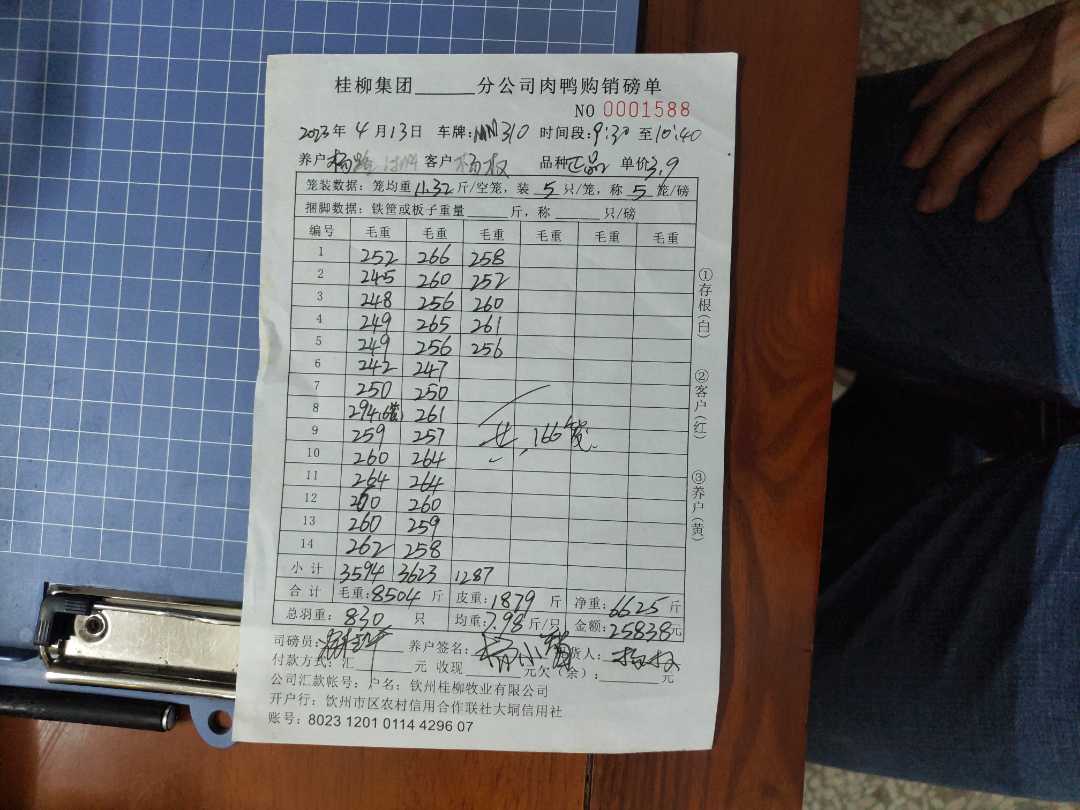 桂柳集团______分公司肉鸭购销磅单
NO 0001588
2023年 4月13日 车牌:MN310 时间段:9:30至10:40
养户:杨 客户杨权 品种正品 单价3.9
笼装数据：笼均重11.32斤/空笼，装 5 只/笼，称 5 笼/磅
捆脚数据：铁筐或板子重量______斤，称______只/磅
编号 毛重 毛重 毛重 毛重 毛重 毛重
1 252 266 258
2 245 260 252
3 248 256 260
4 249 265 261
5 249 256 256
6 242 247
7 250 250
8 294(6笼) 261
9 259 257
10 260 264
11 264 264
12 260 260
13 260 259
14 262 258
共,166笼
小计 3594 3623 1287
合计 毛重:8504 斤 皮重:1879 斤 净重:6625斤
总羽重:830 只 均重:7.98斤/只 金额:25838元
司磅员: 养户签名:杨小 货人:杨权
付款方式：汇______元 收现______元欠(余)：______元
公司汇款帐号：户名：钦州桂柳牧业有限公司
开户行：钦州市区农村信用合作联社大垌信用社
账号：8023 1201 0114 4296 07
①存根(白)
②客户(红)
③养户(黄)